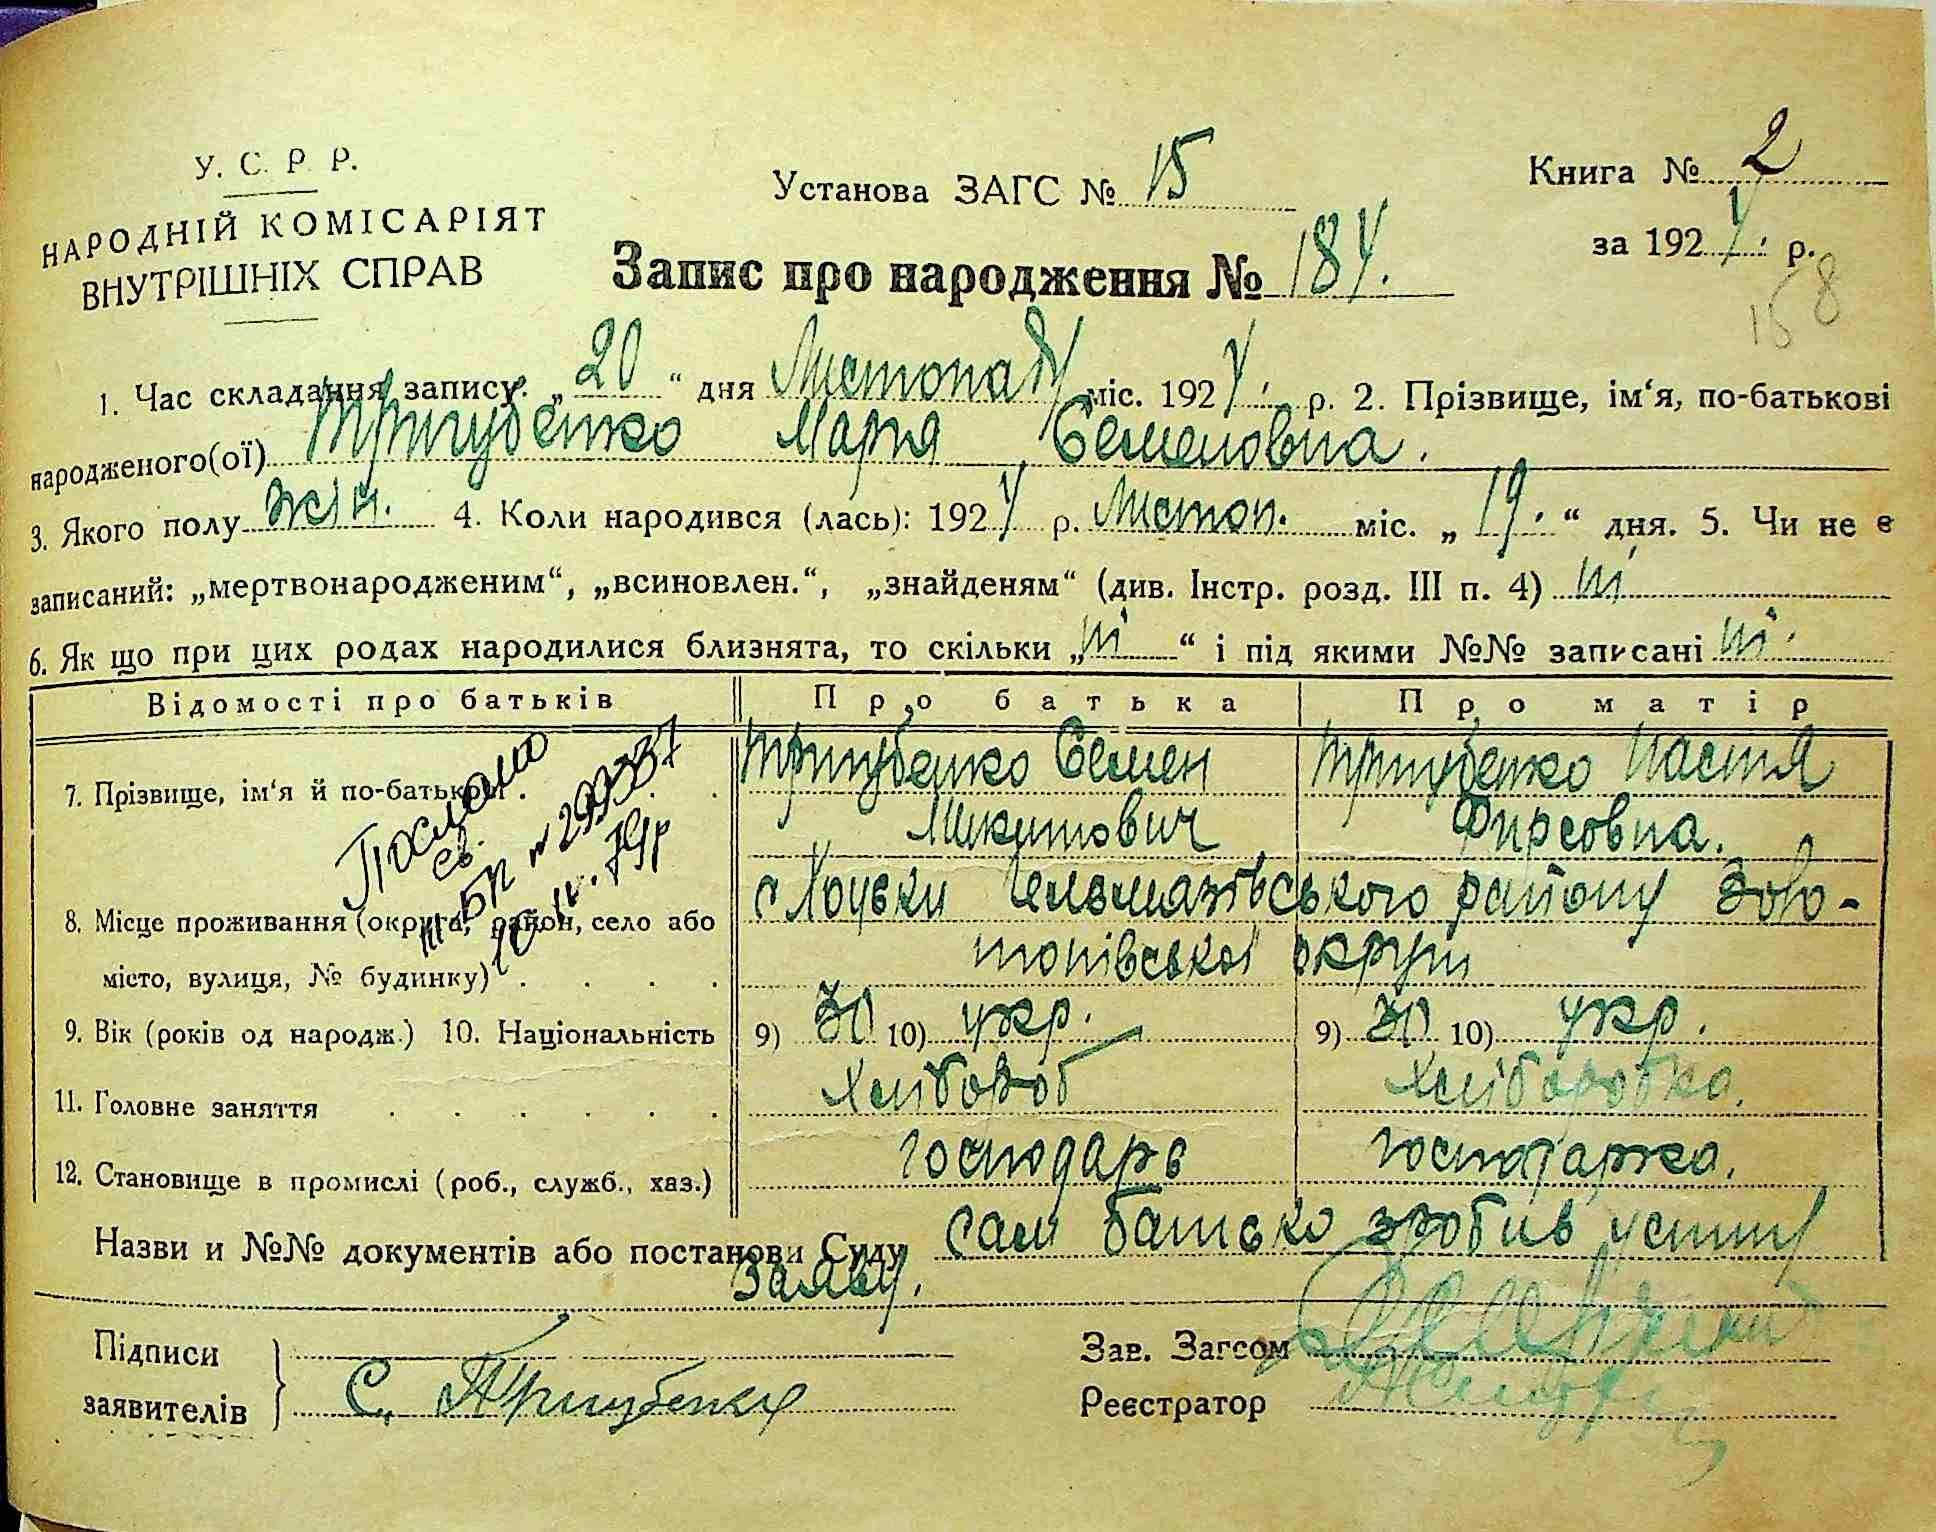 У. С. Р. Р.
НАРОДНІЙ КОМІСАРІЯТ
ВНУТРІШНІХ СПРАВ
Установа ЗАГС № 15
Книга № 2
за 1924 р.
158
Запис про народження № 184.
1. Час складання запису: „20“ дня Листопаду міс. 1924 р. 2. Прізвище, ім‘я, по-батькові
народженого(ої) Тригубенко Марія Семеновна.
3. Якого полу жін. 4. Коли народився (лась): 1924 р. Листоп. міс. „19“ дня. 5. Чи не є
записаний: „мертвонародженим“, „всиновлен.“, „знайденям“ (див. Інстр. розд. III п. 4) ні
6. Як що при цих родах народилися близнята, то скільки „ні“ і під якими №№ записані ні.
Відомості про батьків Про батька Про матір
7. Прізвище, ім‘я й по-батькові Тригубенко Семен Тригубенко Настя
Микитович Фирсовна.
Послано
св.
8. Місце проживання (округа, район, село або с Гельмязівського району Золо-
місто, вулиця, № будинку) тонівської округи
9. Вік (років од народж.) 10. Національність 9) 30 10) укр. 9) 30 10) укр.
11. Головне заняття Хлібороб Хліборобка.
12. Становище в промислі (роб., служб., хаз.) господарь господарка.
Назви и №№ документів або постанови Суду сам батько зробив устну
заяву.
Підписи
заявителів С. Тригубенко
Зав. Загсом
Реєстратор